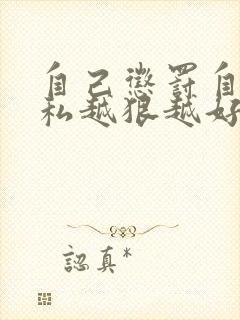 自己懲罰自
私越狠越好
認真*